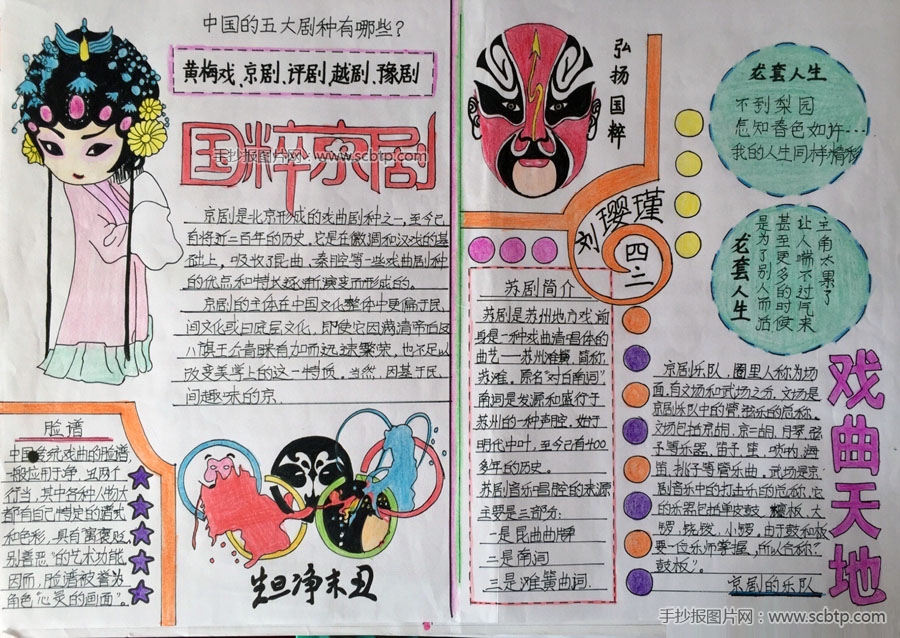 中国的五大剧种有哪些?
黄梅戏、京剧、评剧、越剧、豫剧
国粹京剧
手抄报图片网:www.scbtp.com
京剧是北京形成的戏曲剧种之一,至今已
有将近二百年的历史。它是在徽调和汉戏的基
础上,吸收了昆曲、秦腔等一些戏曲剧种
的优点和特长逐渐演变而形成的。
京剧的主体在中国文化整体中更偏于民
间文化或曰底层文化,即使它因满清帝后及
八旗王公青睐有加而迅速繁荣,也不足以
改变美学上的这一特质。当然,因基于民
间趣味的京
脸谱
中国传统戏曲的脸谱
一般应用于净、丑两个
行当,其中各种人物大
都有自己特定的谱式
和色彩,具有"寓褒贬、
别善恶"的艺术功能
因而,脸谱被誉为
角色"心灵的画面"。
生旦净末丑
弘扬国粹
刘璎瑾
四二
苏剧简介
苏剧是苏州地方戏,前
身是一种戏曲清唱体的
曲艺——苏州滩簧,简称
苏滩。原名"对白南词"
南词是发源和盛行于
苏州的一种声腔,始于
明代中叶,至今已有400
多年的历史。
苏剧音乐唱腔的来源
主要是三部分:
一是昆曲曲牌
二是南词
三是滩簧曲词.
龙套人生
不到梨园
怎知春色如许...
我的人生同样精彩
主角太累了
让人喘不过气来
甚至更多的时候
是为了别人而活
龙套人生
京剧乐队,圈里人称为场
面,有文场和武场之分。文场是
京剧乐队中的管弦乐的总称。
文场包括京胡、京二胡、月琴、弦
子等乐器,笛子、笙、唢呐、海
笛、拟子等管乐曲。武场是京
剧音乐中的打击乐的总称,它
的乐器包括单皮鼓、檀板、大
锣、铙钹、小锣,由于鼓和板
要一位乐师掌握,所以合称"
鼓板"。
京剧的乐队
戏曲天地
手抄报图片网:www.scbtp.com